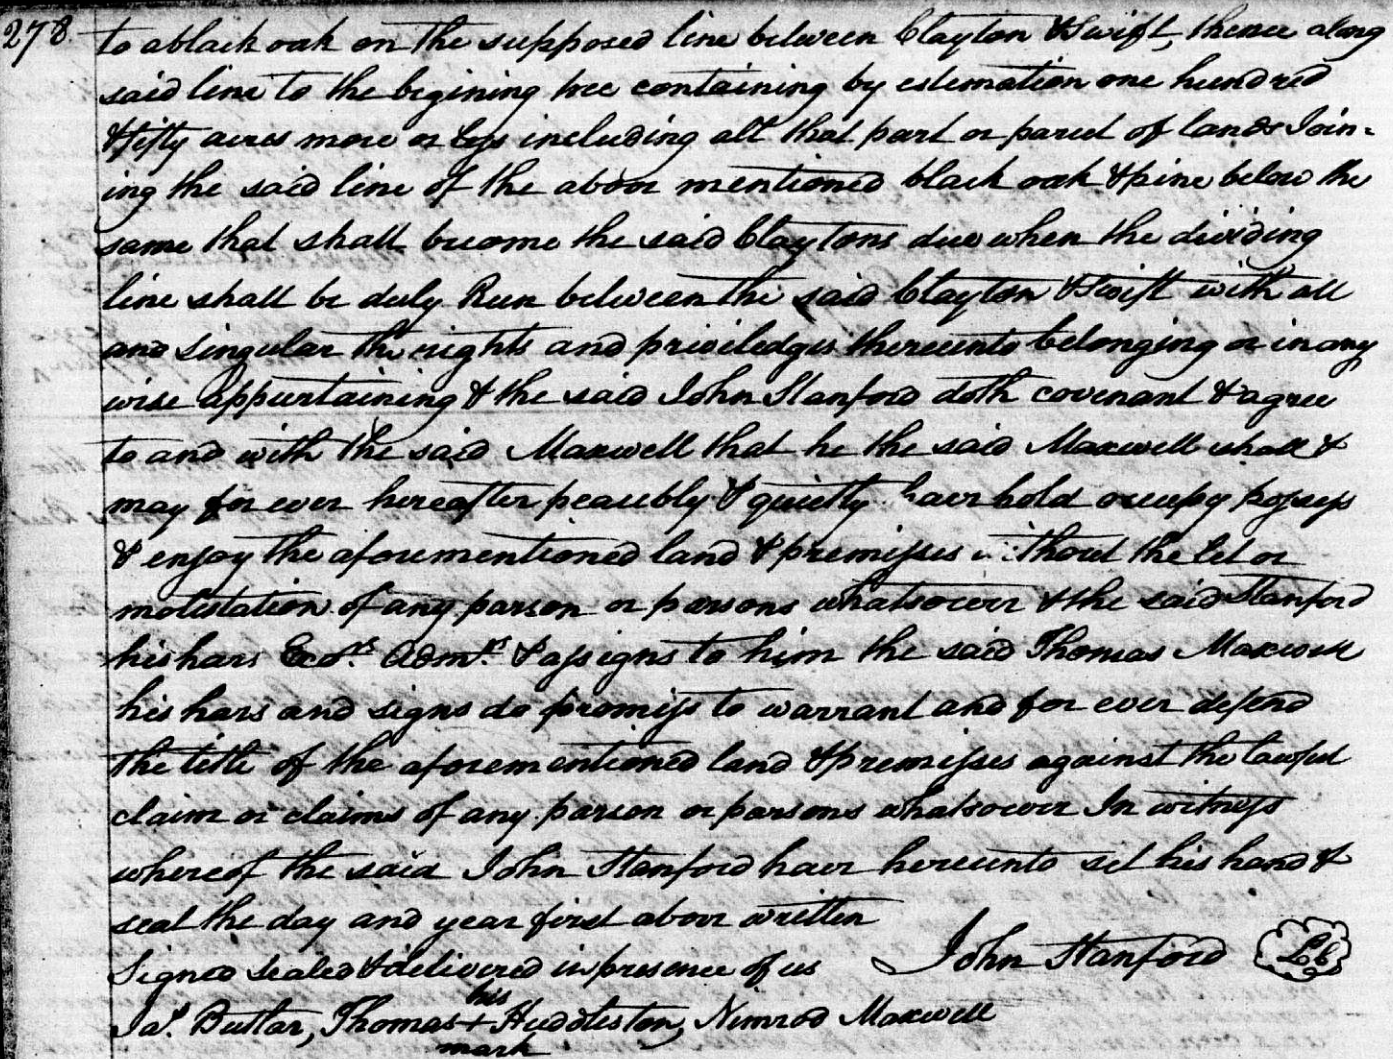 278. to a black oak on the supposed line between Clayton & Swift, thence along
said line to the begining tree containing by estemation one hundred
& fifty acres more or less including all that part or parcel of lands Join-
ing the said line of the above mentioned black oak & pine below the
same that shall become the said Claytons due when the dividing
line shall be duly Run between the said Clayton & Swift with all
and Singular the rights and priviledges thereunto belonging or in any
wise Appurtaining & the said John Stanford doth covenant & agree
to and with the said Maxwell that he the said Maxwell shall &
may for ever hereafter peacebly & quietly have hold occupy possess
& enjoy the aforementioned land & premisses without the let or
molestation of any parson or parsons whatsoever & the said Stanford
his hars Exors. Admrs. & assigns to him the said Thomas Maxwell
his hars and signs do promiss to warrant and for ever defend
the title of the aforementioned land & premisses against the lawful
claim or claims of any parson or parsons whatsoever In witness
whereof the said John Stanford have hereunto set his hand &
seal the day and year first above written
Signed Sealed & delivered in presence of us John Stanford
his
Jas. Butlar, Thomas + Huddleston, Nimrod Maxwell
mark